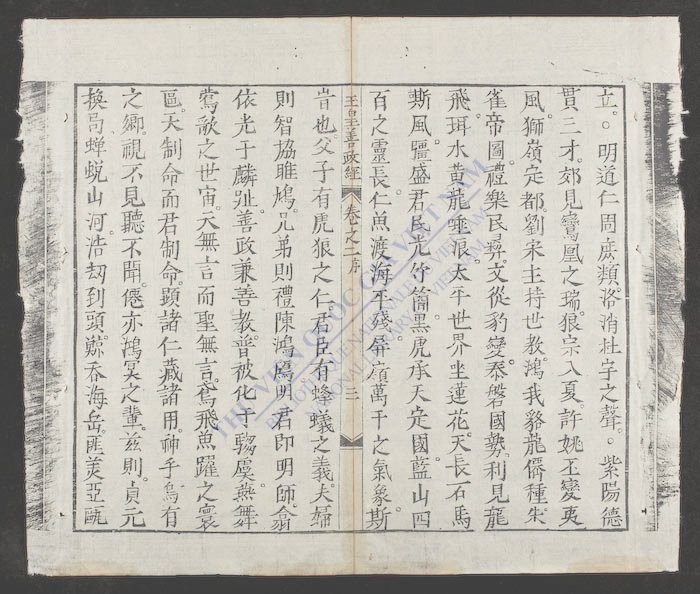 立。明道仁周庶類。洛消杜宇之聲。紫陽德
貫三才。郊見鸞凰之瑞。狼宗入夏。許姚丕變夷
風。獅嶺定都。劉宋主持世教。鴻我貉龍儕種。朱
雀帝圖。禮樂民彝。文從豹變。泰磐國勢。利見龍
飛。珥水黃龍唾浪。太平世界坐蓮花。天長石馬
斯風。疆盛君民光竹簡。黑虎承天定國。藍山四
百之靈長。仁魚渡海平殘。屏嶺萬千之氣象。斯
旹也。父子有虎狼之仁。君臣有蜂蟻之義。夫婦
則智協雎鳩。兄弟則禮陳鴻鴈。明君即明師。翕
依光于麟趾。善政兼善教。普被化于騶虞。燕舞
鶯歌之世宙。天無言而聖無言。鳶飛魚躍之寰
區。天制命而君制命。顯諸仁藏諸用。神乎烏有
之鄉。視不見聽不聞。僊亦鴻冥之輩。茲則。貞元
換局。蟬蛻山河。浩刼到頭。鯨吞海岳。匪羙亞甌
玉皇善政經
卷之一序
三
THƯ VIỆN QUỐC GIA VIỆT NAM
BIBLIOTHÈQUE NATIONALE DU VIETNAM
NATIONAL LIBRARY OF VIETNAM